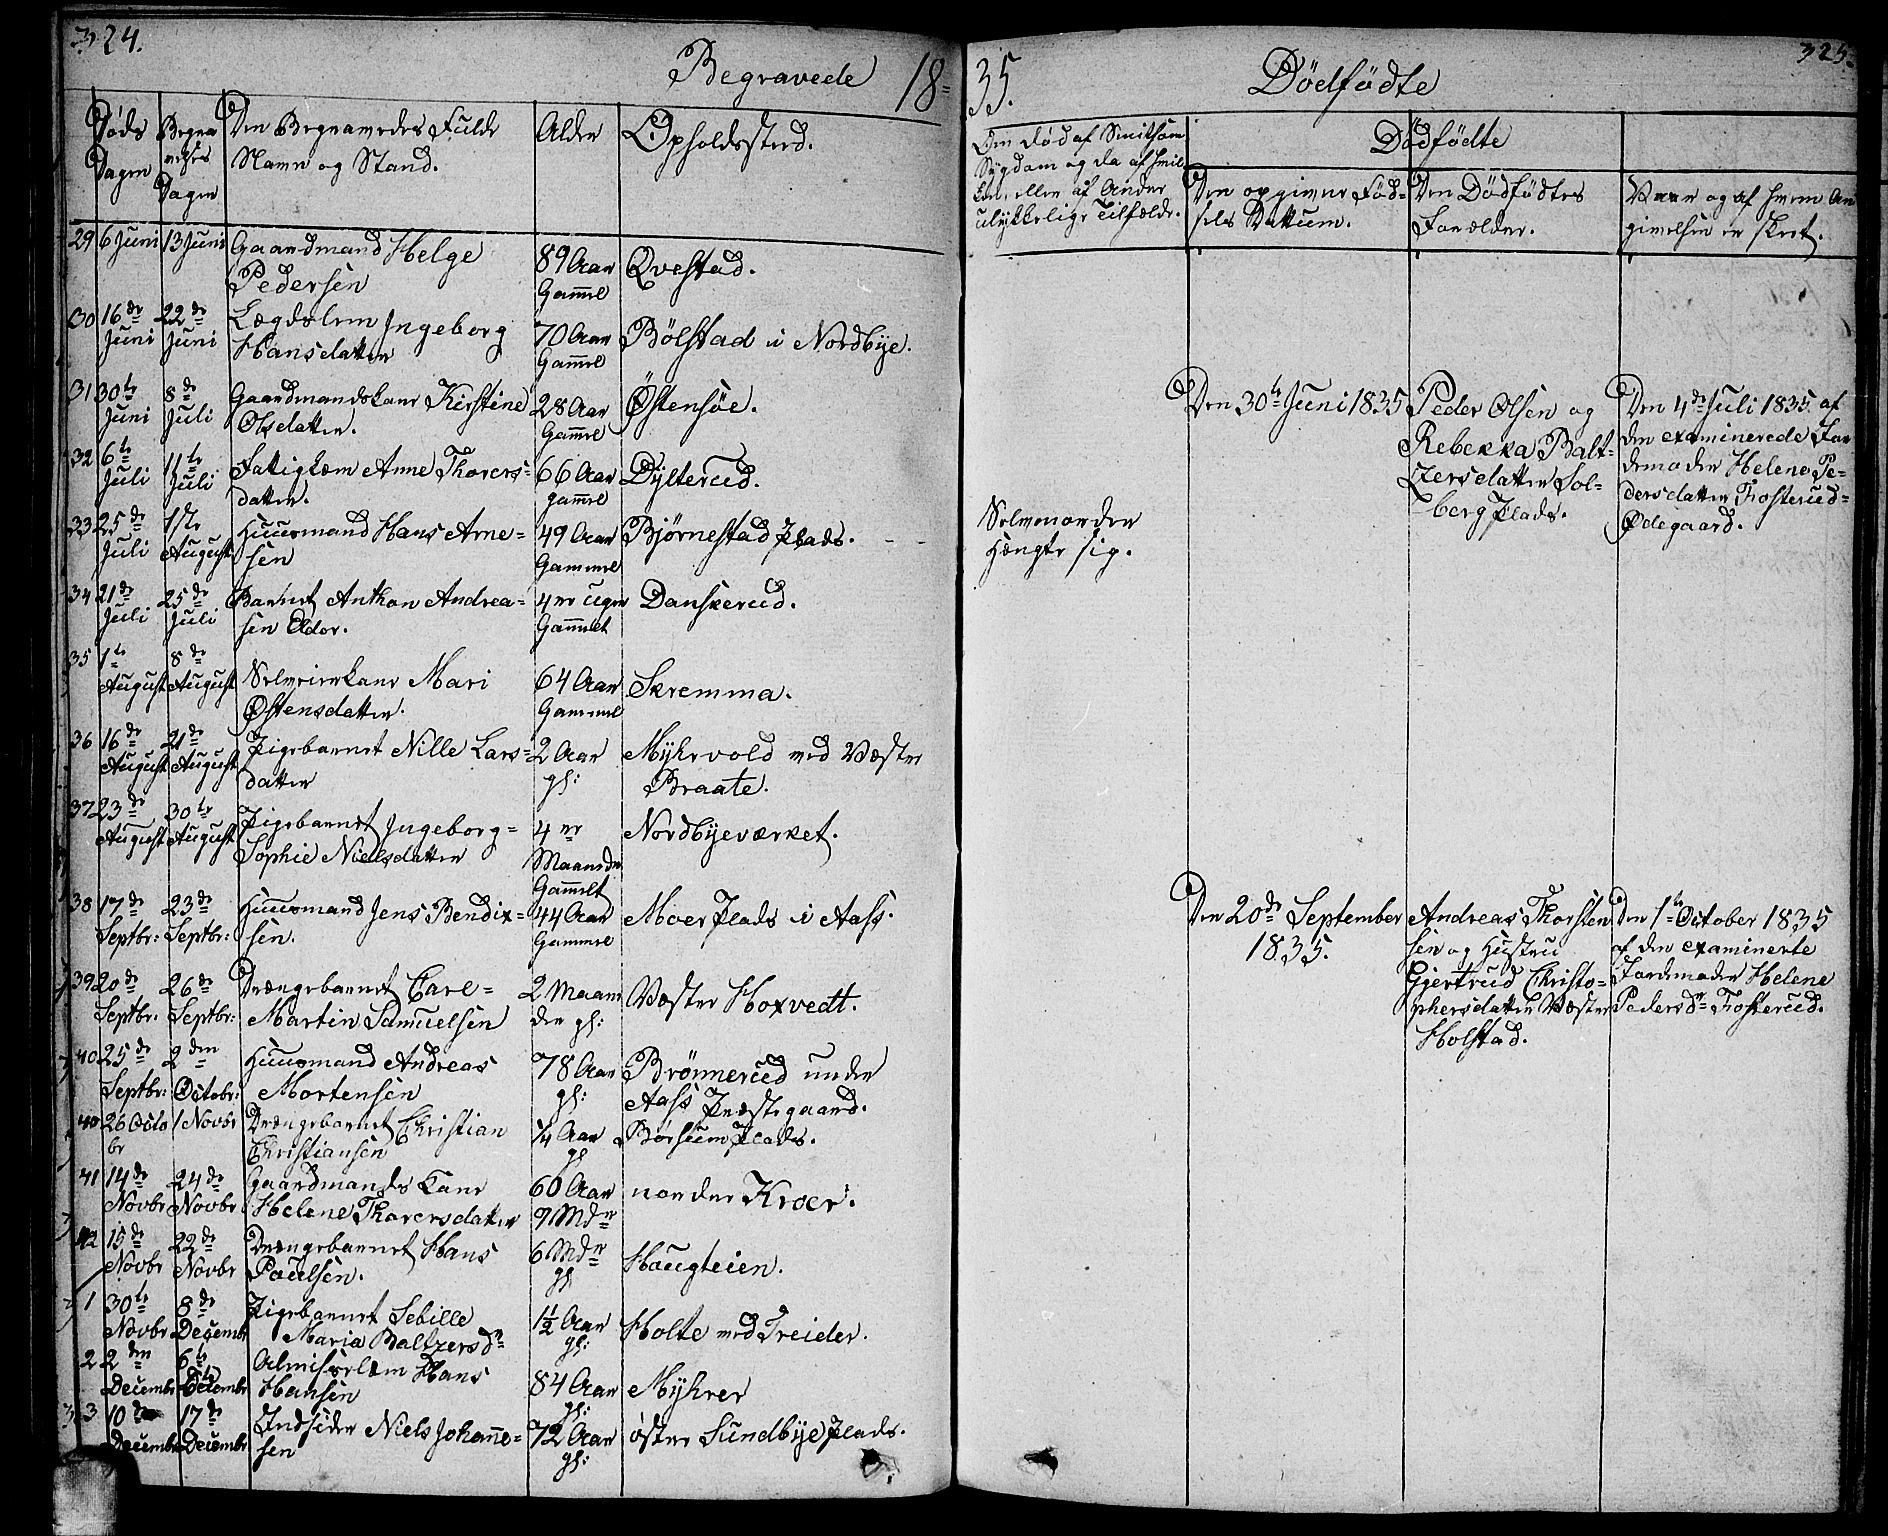 324.
Begravede 18-
Døds Dagen
Begravelses Dagen
Den Begravedes Fulde Navn og Stand.
Alder
Opholdssted.
29 6 Juni 13 Juni Gaardmand Helge Pedersen 89 Aar Gam̅el Qvestad.
30 16de Juni 22de Juni Lægdslem Ingeborg Hansdatter 70 Aar Gam̅el Bølstad i Nordbye.
31 30te Juni 8de Juli Gaardmandskone Kirstine Olsdatter. 28 Aar Gam̅el Østensøe.
32 6te Juli 11te Juli Fatiglem Anne Thorers-datter. 66 Aar gam̅el Dÿlterud.
33 25de Juli 1ste August Huusmand Hans Arne-sen 49 Aar Gammel Bjørnestad Plads.
34 21de Juli 25de Juli Barnet Anthon Andrea-sen Eldor. 4er uger Gam̅elt Danskerud.
35 1te August 8de August Selveierkone Mari Østensdatter. 64 Aar Gammel Skremma.
36 16de August 21de August Pigebarnet Nille Lars-datter 2 Aar gl: Mÿhrvold ved Væster Braate.
37 23de August 30te August Pigebarnet Ingeborg-Sophie Nielsdatter 4er Maaneder Gam̅elt Nordbÿeværket.
38 17de Septbr: 23de Septbr: Huusmand Jens Bendix-sen. 44 Aar Gammel Moer Plads i Aass.
39 20de Septbr. 26de Septbr: Drængebarnet Care-Martin Samuelsen 2 Maaneder gl: Væster Hoxvedt.
40 25de Septbr: 2den Octobr: Huusmand Andreas Mortensen 78 Aar gl: Brönnerud under Aass Præstegaard.
40 26 Octobr 1 Novbr Drængebarnet Christian Christiansen 1/4 Aar gl Börsum Plads.
41 14de Novbr 24de Novbr Gaardmands Kone Helene Thorersdatter 60 Aar 9 Mdr nordre Kroer.
42 15de Novbr 22de Novbr Drængebarnet Hans Paulsen. 6 Mdr gl Haugteien.
1 30te Novbr 8de Decembr Pigebarnet Sebille Maria Baltzersdr 1½ Aar gl: Holte ved Dreider.
2 2den Decembr 6te Decembr Almisselem Hans Hansen 84 Aar gl: Mÿhrer
3 10de Decembr 17de Decembr Indsidder Niels Johan̅e-sen 72 Aar gl: øster Sundbÿe Plads.
35.
Dödfödte
325.
Om død af Smitsom
Sÿgdom og da af hvil
ken, eller af Andre
ulykkelige Tilfælde.
Dödfødte
Den opgivne Föd-
sels Dattum.
Den Dödfödtes
Forælder.
Naar og af hvem An
givelsen er skeet.
Den 30te Juni 1835
Peder Olsen og
Rebekka Balt-
zersdatter Sol-
berg Plads.
Den 4de Juli 1835 af
den examinerede Jor
demoder Helene Pe-
dersdatter Fosterud-
Ødegaard.
Selvmorder
Hængte sig.
Den 20de September
1835.
Andreas Thorsten
sen og Hustru
Gjertrud Christo-
phersdatter Væster
Holstad.
Den 1te October 1835
af den examinerte
Jordmoder Helene
Pedersdr Fosterud.